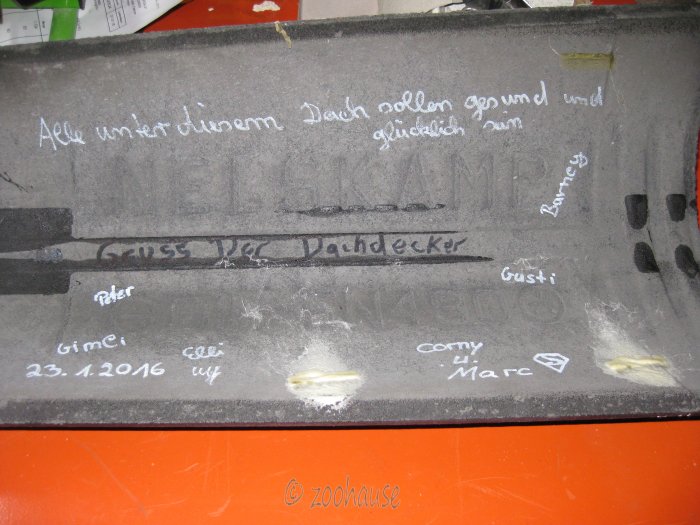 Alle unter diesem Dach sollen gesund und
glücklich sein
NELSKAMP
Barney
Gruss Der Dachdecker
Gusti
Peter
Gimli
23.1.2016
Elli
Corny
u.
Marc
© zoohause